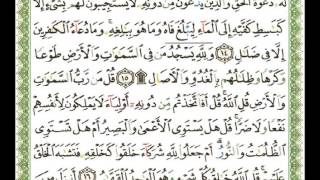 لَهُۥ دَعْوَةُ ٱلْحَقِّ وَٱلَّذِينَ يَدْعُونَ مِن دُونِهِۦ لَا يَسْتَجِيبُونَ لَهُم بِشَىْءٍ إِلَّا
كَبَٰسِطِ كَفَّيْهِ إِلَى ٱلْمَآءِ لِيَبْلُغَ فَاهُ وَمَا هُوَ بِبَٰلِغِهِۦ وَمَا دُعَآءُ ٱلْكَٰفِرِينَ
إِلَّا فِى ضَلَٰلٍ ١٤ وَلِلَّهِ يَسْجُدُ مَن فِى ٱلسَّمَٰوَٰتِ وَٱلْأَرْضِ طَوْعًا
وَكَرْهًا وَظِلَٰلُهُم بِٱلْغُدُوِّ وَٱلْءَاصَالِ ١٥ قُلْ مَن رَّبُّ ٱلسَّمَٰوَٰتِ
وَٱلْأَرْضِ قُلِ ٱللَّهُ قُلْ أَفَٱتَّخَذْتُم مِّن دُونِهِۦٓ أَوْلِيَآءَ لَا يَمْلِكُونَ لِأَنفُسِهِمْ
نَفْعًا وَلَا ضَرًّا قُلْ هَلْ يَسْتَوِى ٱلْأَعْمَىٰ وَٱلْبَصِيرُ أَمْ هَلْ تَسْتَوِى
ٱلظُّلُمَٰتُ وَٱلنُّورُ أَمْ جَعَلُوا۟ لِلَّهِ شُرَكَآءَ خَلَقُوا۟ كَخَلْقِهِۦ فَتَشَٰبَهَ ٱلْخَلْقُ
عَلَيْهِمْ قُلِ ٱللَّهُ خَٰلِقُ كُلِّ شَىْءٍ وَهُوَ ٱلْوَٰحِدُ ٱلْقَهَّٰرُ ١٦ أَنزَلَ مِنَ